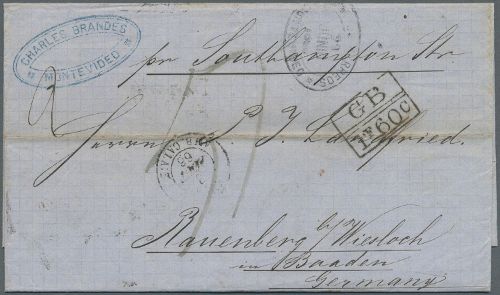 CHARLES BRANDES
MONTEVIDEO
pr Southampton Str
GB
1F60C
Herrn P. J. Landfried.
CALAIS
Rauenberg b/Wiesloch
in Baaden
Germany